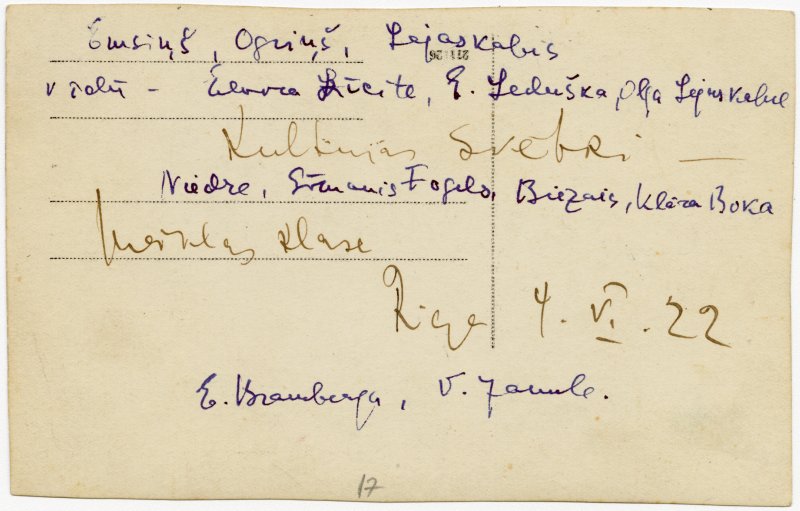 Emsiņš, Ogriņš, Lejaskalns
vidū – Līcīte, E. Leduška, Olga Lejaskalne
Kultūras svētki —
Niedre, Sīmanis Fogels, Biezais, Klāra Boka
klase
Rīga 4. VI. 22
E. Bramberga, V. Janule.
17